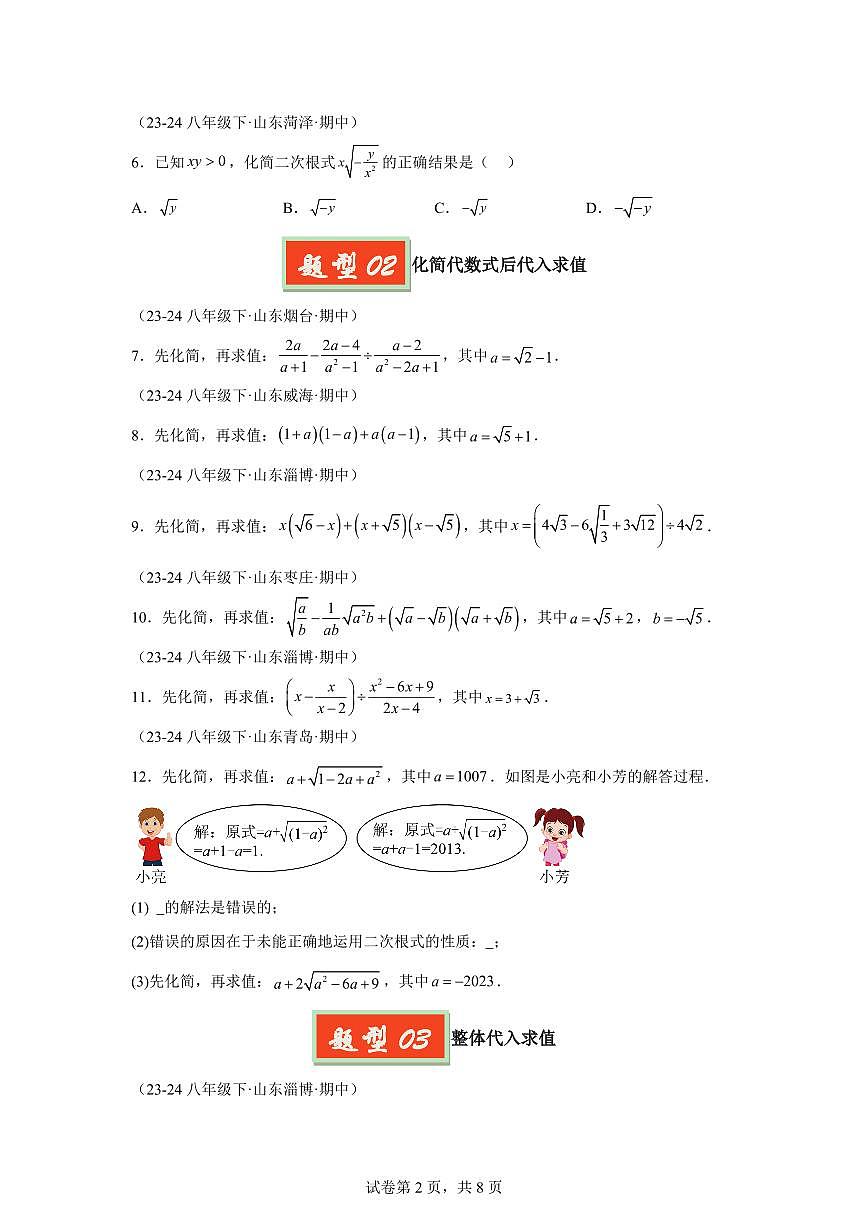 （23-24 八年级下·山东菏泽·期中）
6．已知 xy > 0，化简二次根式 x√(-y/x²) 的正确结果是（ ）
A．√y B．√(-y) C．-√y D．-√(-y)
题型 02 化简代数式后代入求值
（23-24 八年级下·山东烟台·期中）
7．先化简，再求值：2a/(a+1) - (2a-4)/(a²-1) ÷ (a-2)/(a²-2a+1)，其中 a = √2 - 1．
（23-24 八年级下·山东威海·期中）
8．先化简，再求值：(1+a)(1-a)+a(a-1)，其中 a = √5 + 1．
（23-24 八年级下·山东淄博·期中）
9．先化简，再求值：x(√6-x)+(x+√5)(x-√5)，其中 x = (4√3-6√(1/3)+3√12)÷4√2．
（23-24 八年级下·山东枣庄·期中）
10．先化简，再求值：√(a/b) - (1/ab)√(a²b) + (√a-√b)(√a+√b)，其中 a = √5 + 2，b = -√5．
（23-24 八年级下·山东淄博·期中）
11．先化简，再求值：(x - x/(x-2)) ÷ (x²-6x+9)/(2x-4)，其中 x = 3 + √3．
（23-24 八年级下·山东青岛·期中）
12．先化简，再求值：a+√(1-2a+a²)，其中 a = 1007．如图是小亮和小芳的解答过程．
解：原式=a+√(1-a)²
=a+1-a=1.
小亮
解：原式=a+√(1-a)²
=a+a-1=2013.
小芳
(1) _的解法是错误的；
(2)错误的原因在于未能正确地运用二次根式的性质：_；
(3)先化简，再求值：a+2√(a²-6a+9)，其中 a = -2023．
题型 03 整体代入求值
（23-24 八年级下·山东淄博·期中）
试卷第 2 页，共 8 页